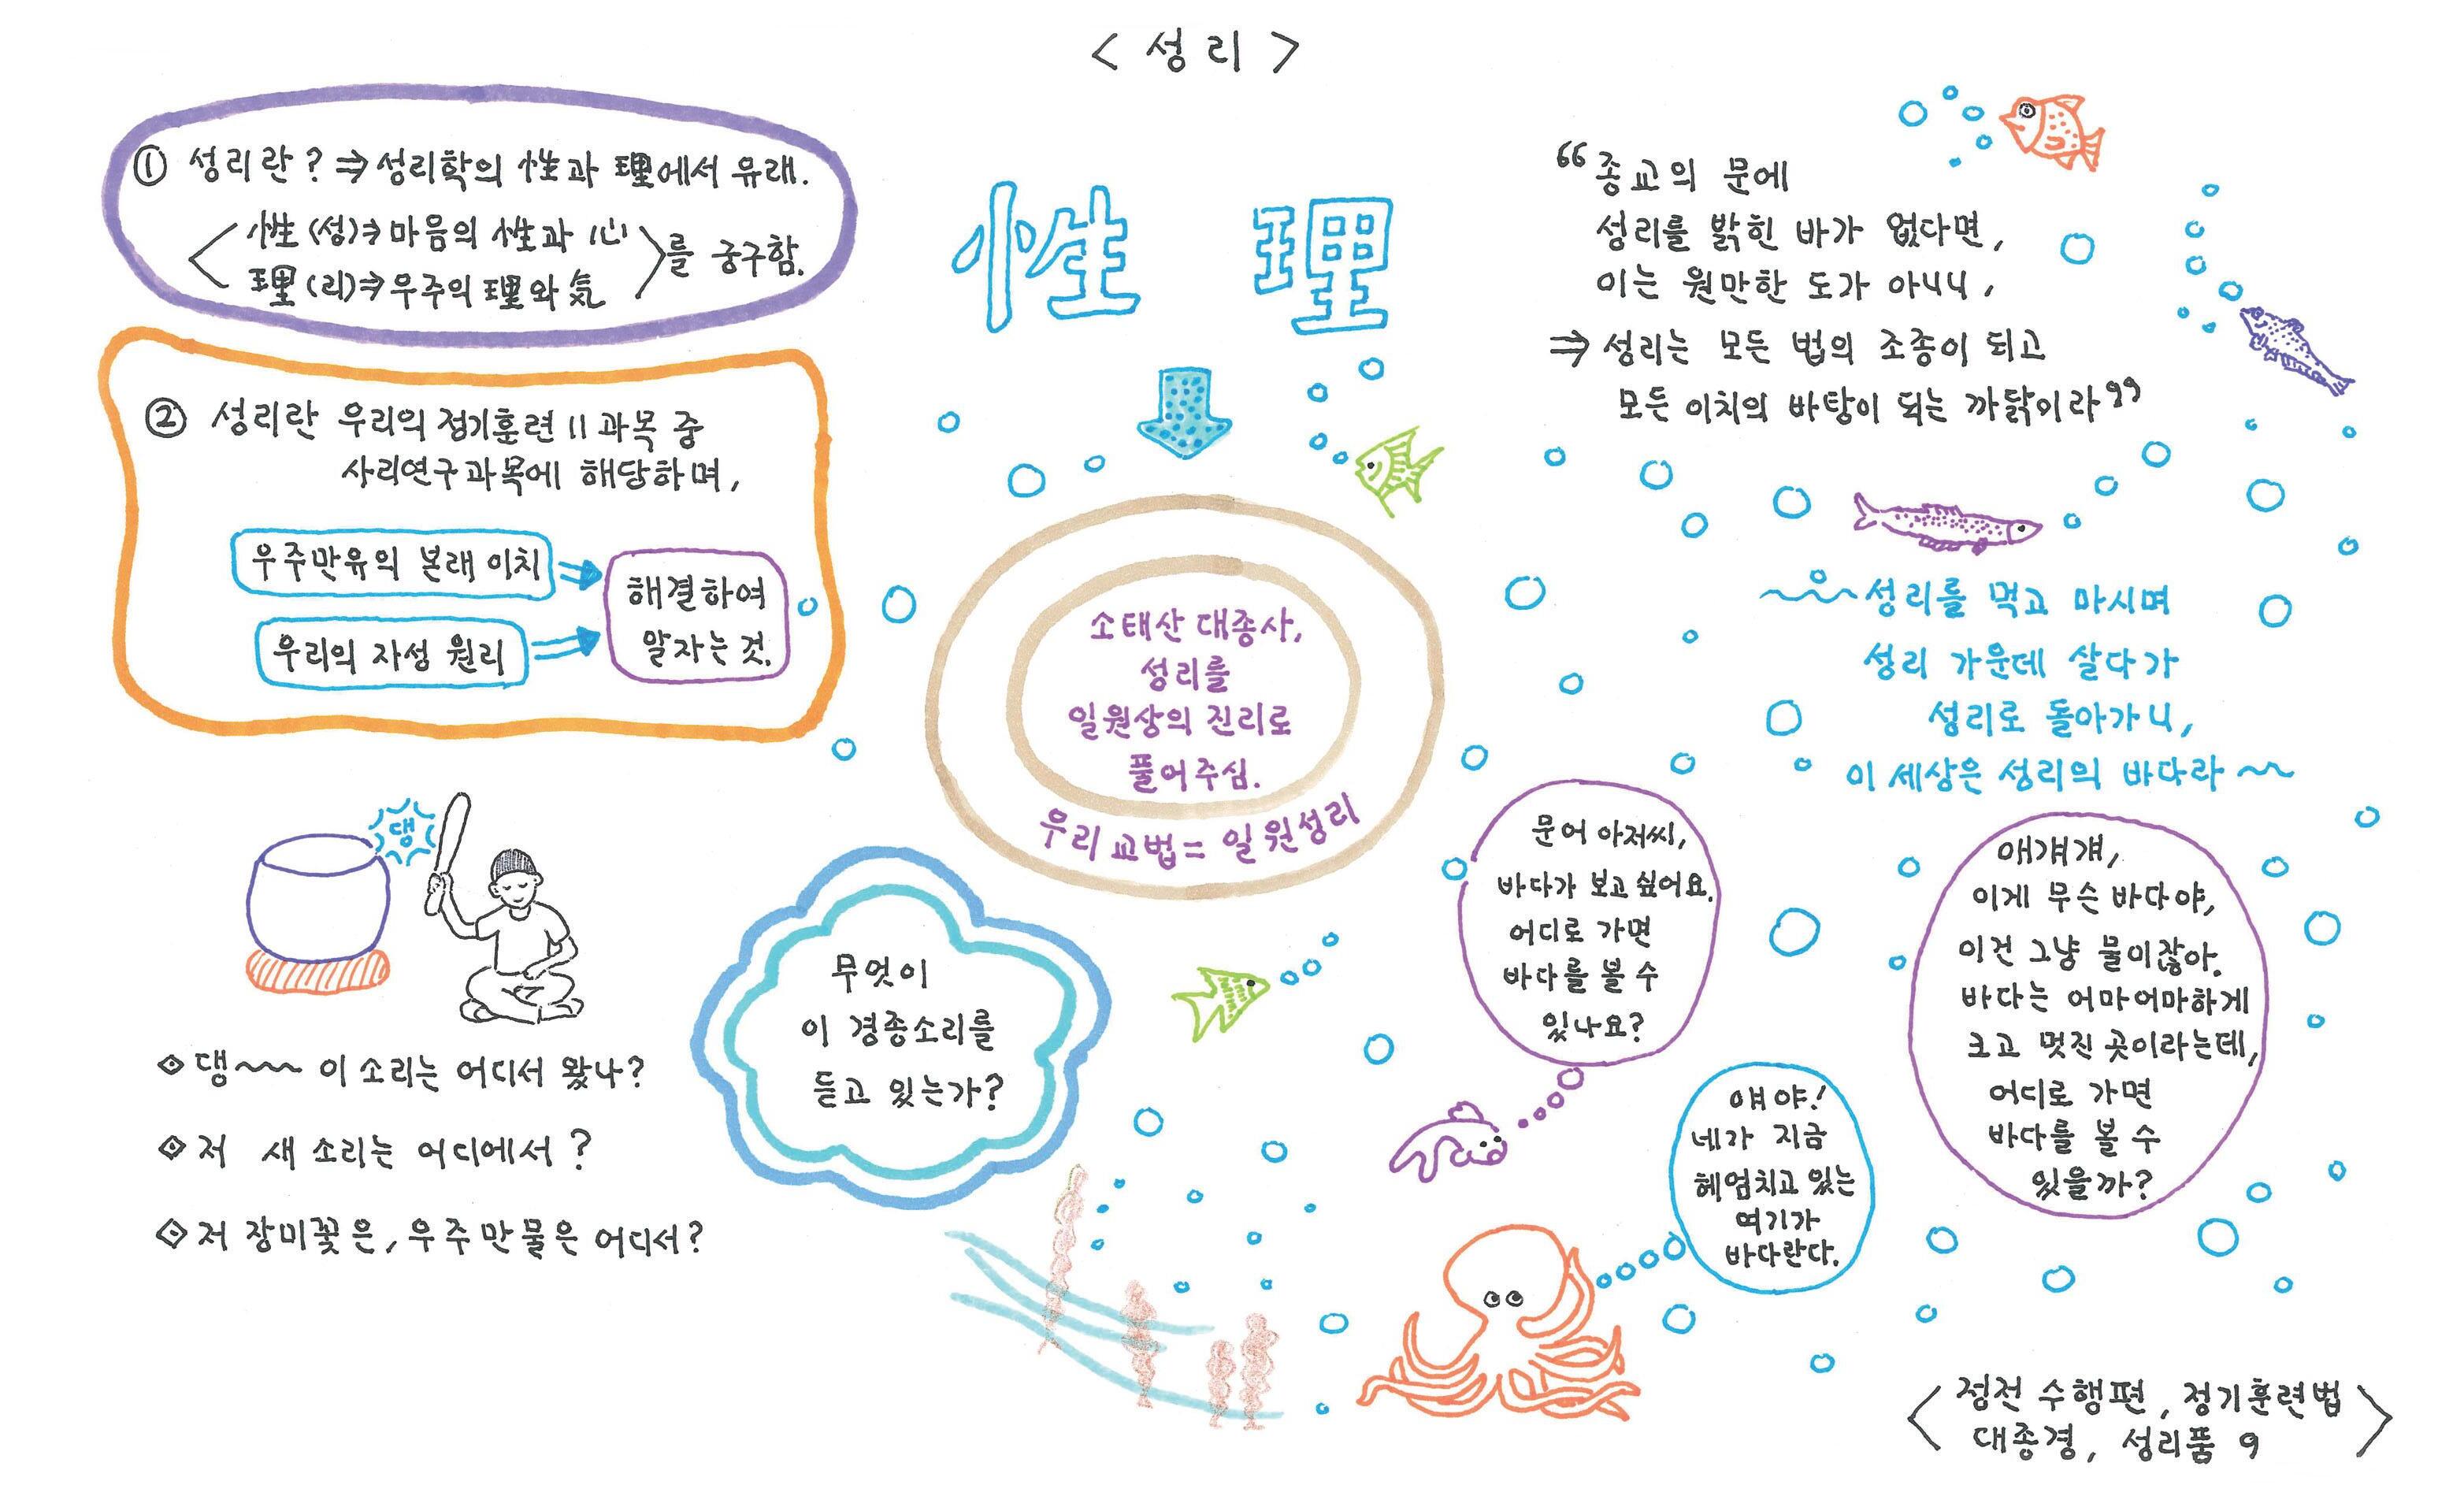 < 성리 >
① 성리란? ⇒ 성리학의 性과 理에서 유래.
性 (성)⇒ 마음의 性과 心
理 (리)⇒ 우주의 理와 氣
를 궁구함.
② 성리란 우리의 정기훈련 11과목 중
사리연구과목에 해당하며,
우주만유의 본래 이치
우리의 자성 원리
해결하여
알자는 것.
댕
◇ 댕~~~ 이 소리는 어디서 왔나?
◇ 저 새 소리는 어디에서?
◇ 저 장미꽃은, 우주 만물은 어디서?
性 理
소태산 대종사,
성리를
일원상의 진리로
풀어주심.
우리 교법 = 일원성리
무엇이
이 경종소리를
듣고 있는가?
“종교의 문에
성리를 밝힌 바가 없다면,
이는 원만한 도가 아니니,
⇒ 성리는 모든 법의 조종이 되고
모든 이치의 바탕이 되는 까닭이라”
~~~성리를 먹고 마시며
성리 가운데 살다가
성리로 돌아가니,
이 세상은 성리의 바다라~~
문어 아저씨,
바다가 보고 싶어요.
어디로 가면
바다를 볼 수
있나요?
얘야!
네가 지금
헤엄치고 있는
여기가
바다란다.
애걔걔,
이게 무슨 바다야,
이건 그냥 물이잖아.
바다는 어마어마하게
크고 멋진 곳이라는데,
어디로 가면
바다를 볼 수
있을까?
< 정전 수행편, 정기훈련법
대종경, 성리품 9 >